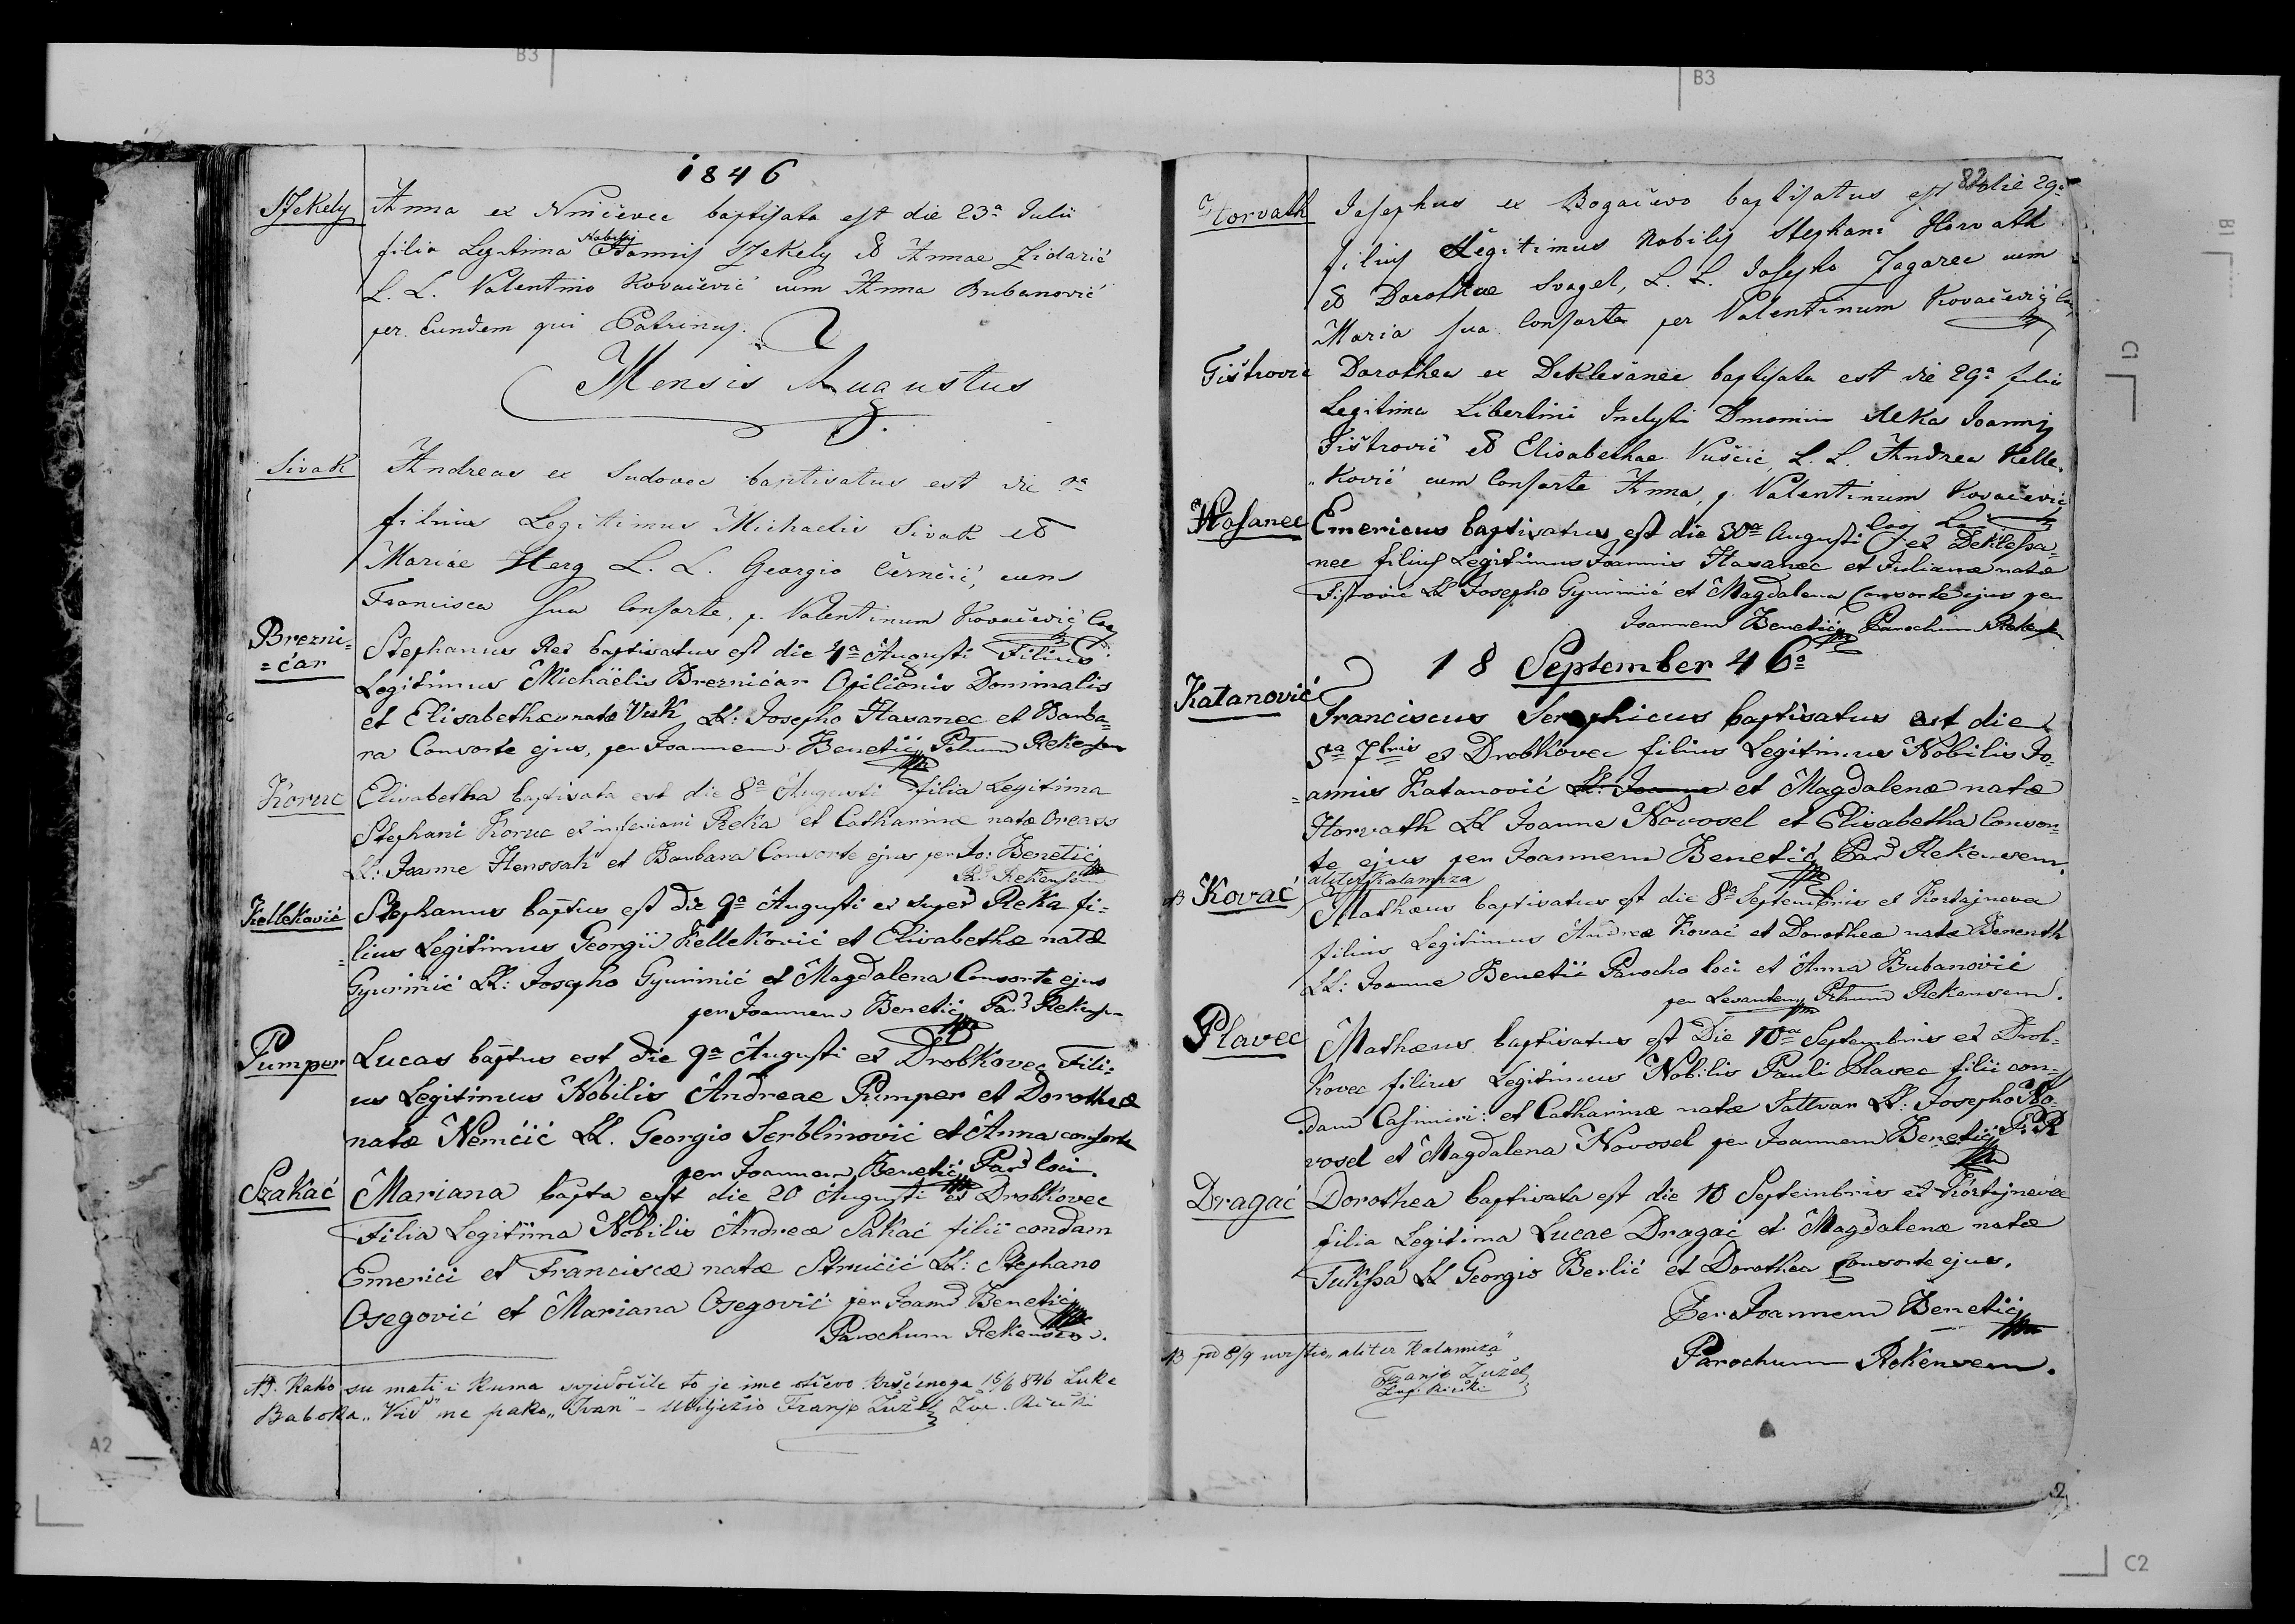 B3
B3
1846
Szekely
Anna ex Ninčevec baptisata est die 23a Julii
filia Legitima Nobilis Joannis Szekely et Annae Zidarić
L. L. Valentino Kovačević cum Anna Bubanović
per Eundem qui Patrinus.
Mensis Augustus
Sivak
Andreas ex Sudovec baptisatus est die
filius Legitimus Michaelis Sivak et
Mariae Herg L. L. Georgio Černčić, cum
Francisca sua Consorte, p. Valentinum Kovačević
Brezni=
=čar
Stephanus Rex baptisatus est die 4a Augusti Filius
Legitimus Michaëlis Brezničar Opilionis Dominalis
et Elisabethæ natæ Vuk, LL: Josepho Havanec et Barba=
ra Consorte ejus, per Joannem Benetić Rekensem
Koruc
Elisabetha baptisata est die 8a Augusti filia Legitima
Stephani Koruc ex inferiori Reka et Catharinæ natæ
LL: Joanne Henssah et Barbara Consorte ejus per Jo: Benetić
Rekensem
Kelleković
Stephanus baptus est die 9a Augusti ex super Reka fi=
=lius Legitimus Georgii Kelleković et Elisabethæ natæ
Gyurinić LL: Josepho Gyurinić et Magdalena Consorte ejus
per Joannem Benetić Par Rekensem
Pumper
Lucas baptus est die 9a Augusti ex Drobkovec Fili=
us Legitimus Nobilis Andreae Pumper et Dorotheæ
natæ Nemčić LL. Georgio Serblinović et Anna consorte
per Joannem Benetić Par loci.
Szakać
Mariana bapta est die 20 Augusti ex Drobkovec
Filia Legitima Nobilis Andreæ Sakać filii condam
Emerici et Franciscæ natæ Stručić LL: Stephano
Osegović et Mariana Osegović per Joan Benetić
Parochum Rekensem.
NB. Kako su mati i kuma svjedočile to je ime otčevo kršćenoga 15/6 846 Luke
Baboka „Vid" ne pako „Ivan" - Franjo Žužel Žup. Rečki
82
Horvath
Josephus ex Bogačevo baptisatus est die 29a
filius Legitimus Nobilis Stephani Horvath
et Dorotheae Svagel, L. L. Josepho Zagarec cum
Maria sua Consorte per Valentinum Kovačević
Fištrović
Dorothea ex Deklešanec baptisata est die 29a filia
Legitima Libertini Inclyti Dminii Reka Joannis
Fištrović et Elisabethae Vuščic, L. L. Andrea Kelle.
„ković cum Consorte Anna, p. Valentinum Kovačević
Havanec
Emericus baptisatus est die 30a Augusti ex Deklessa=
nec filius Legitimus Joannis Havanec et Julianæ natæ
Fistrović LL Josepho Gyurinić et Magdalena Consorte ejus per
Joannem Benetić Parochum Rekensem
18 September 46o
Katanović
Franciscus Seraphicus baptisatus est die
5a 7bris ex Drobkovec filius Legitimus Nobilis Jo.
=annis Katanović LL: Joanne et Magdalenæ natæ
Horvath LL Joanne Novosel et Elisabetha Consor=
te ejus per Joannem Benetić Par Rekensem.
NB Kovać
aliter Kalamiza
Mathæus baptisatus est die 8a Septembris ex Kostajnevec
filius Legitimus Andreæ Kovać et Dorotheæ natæ Benenth
LL: Joanne Benetić Parocho loci et Anna Bubanović
per Levantem Rekensem.
Plavec
Mathæus baptisatus est Die 10a Septembris ex Drob=
kovec filius Legitimus Nobilis Pauli Plavec filii con=
dam Casimiri: et Catharinæ natæ Sattvar LL: Josepho No.
vosel et Magdalena Novosel per Joannem Benetić P. R
Dragać
Dorothea baptisata est die 10 Septembris ex Kostajnevec
filia Legitima Lucae Dragać et Magdalenæ natæ
Tulissa LL Georgio Berlić et Dorothea Consorte ejus.
Per Joannem Benetić
Parochum Rekensem.
NB pod 8/9 uvrstio „aliter Kalamiza"
Franjo Žužel
Žup. Rečki
B1
C1
A2
C2
2